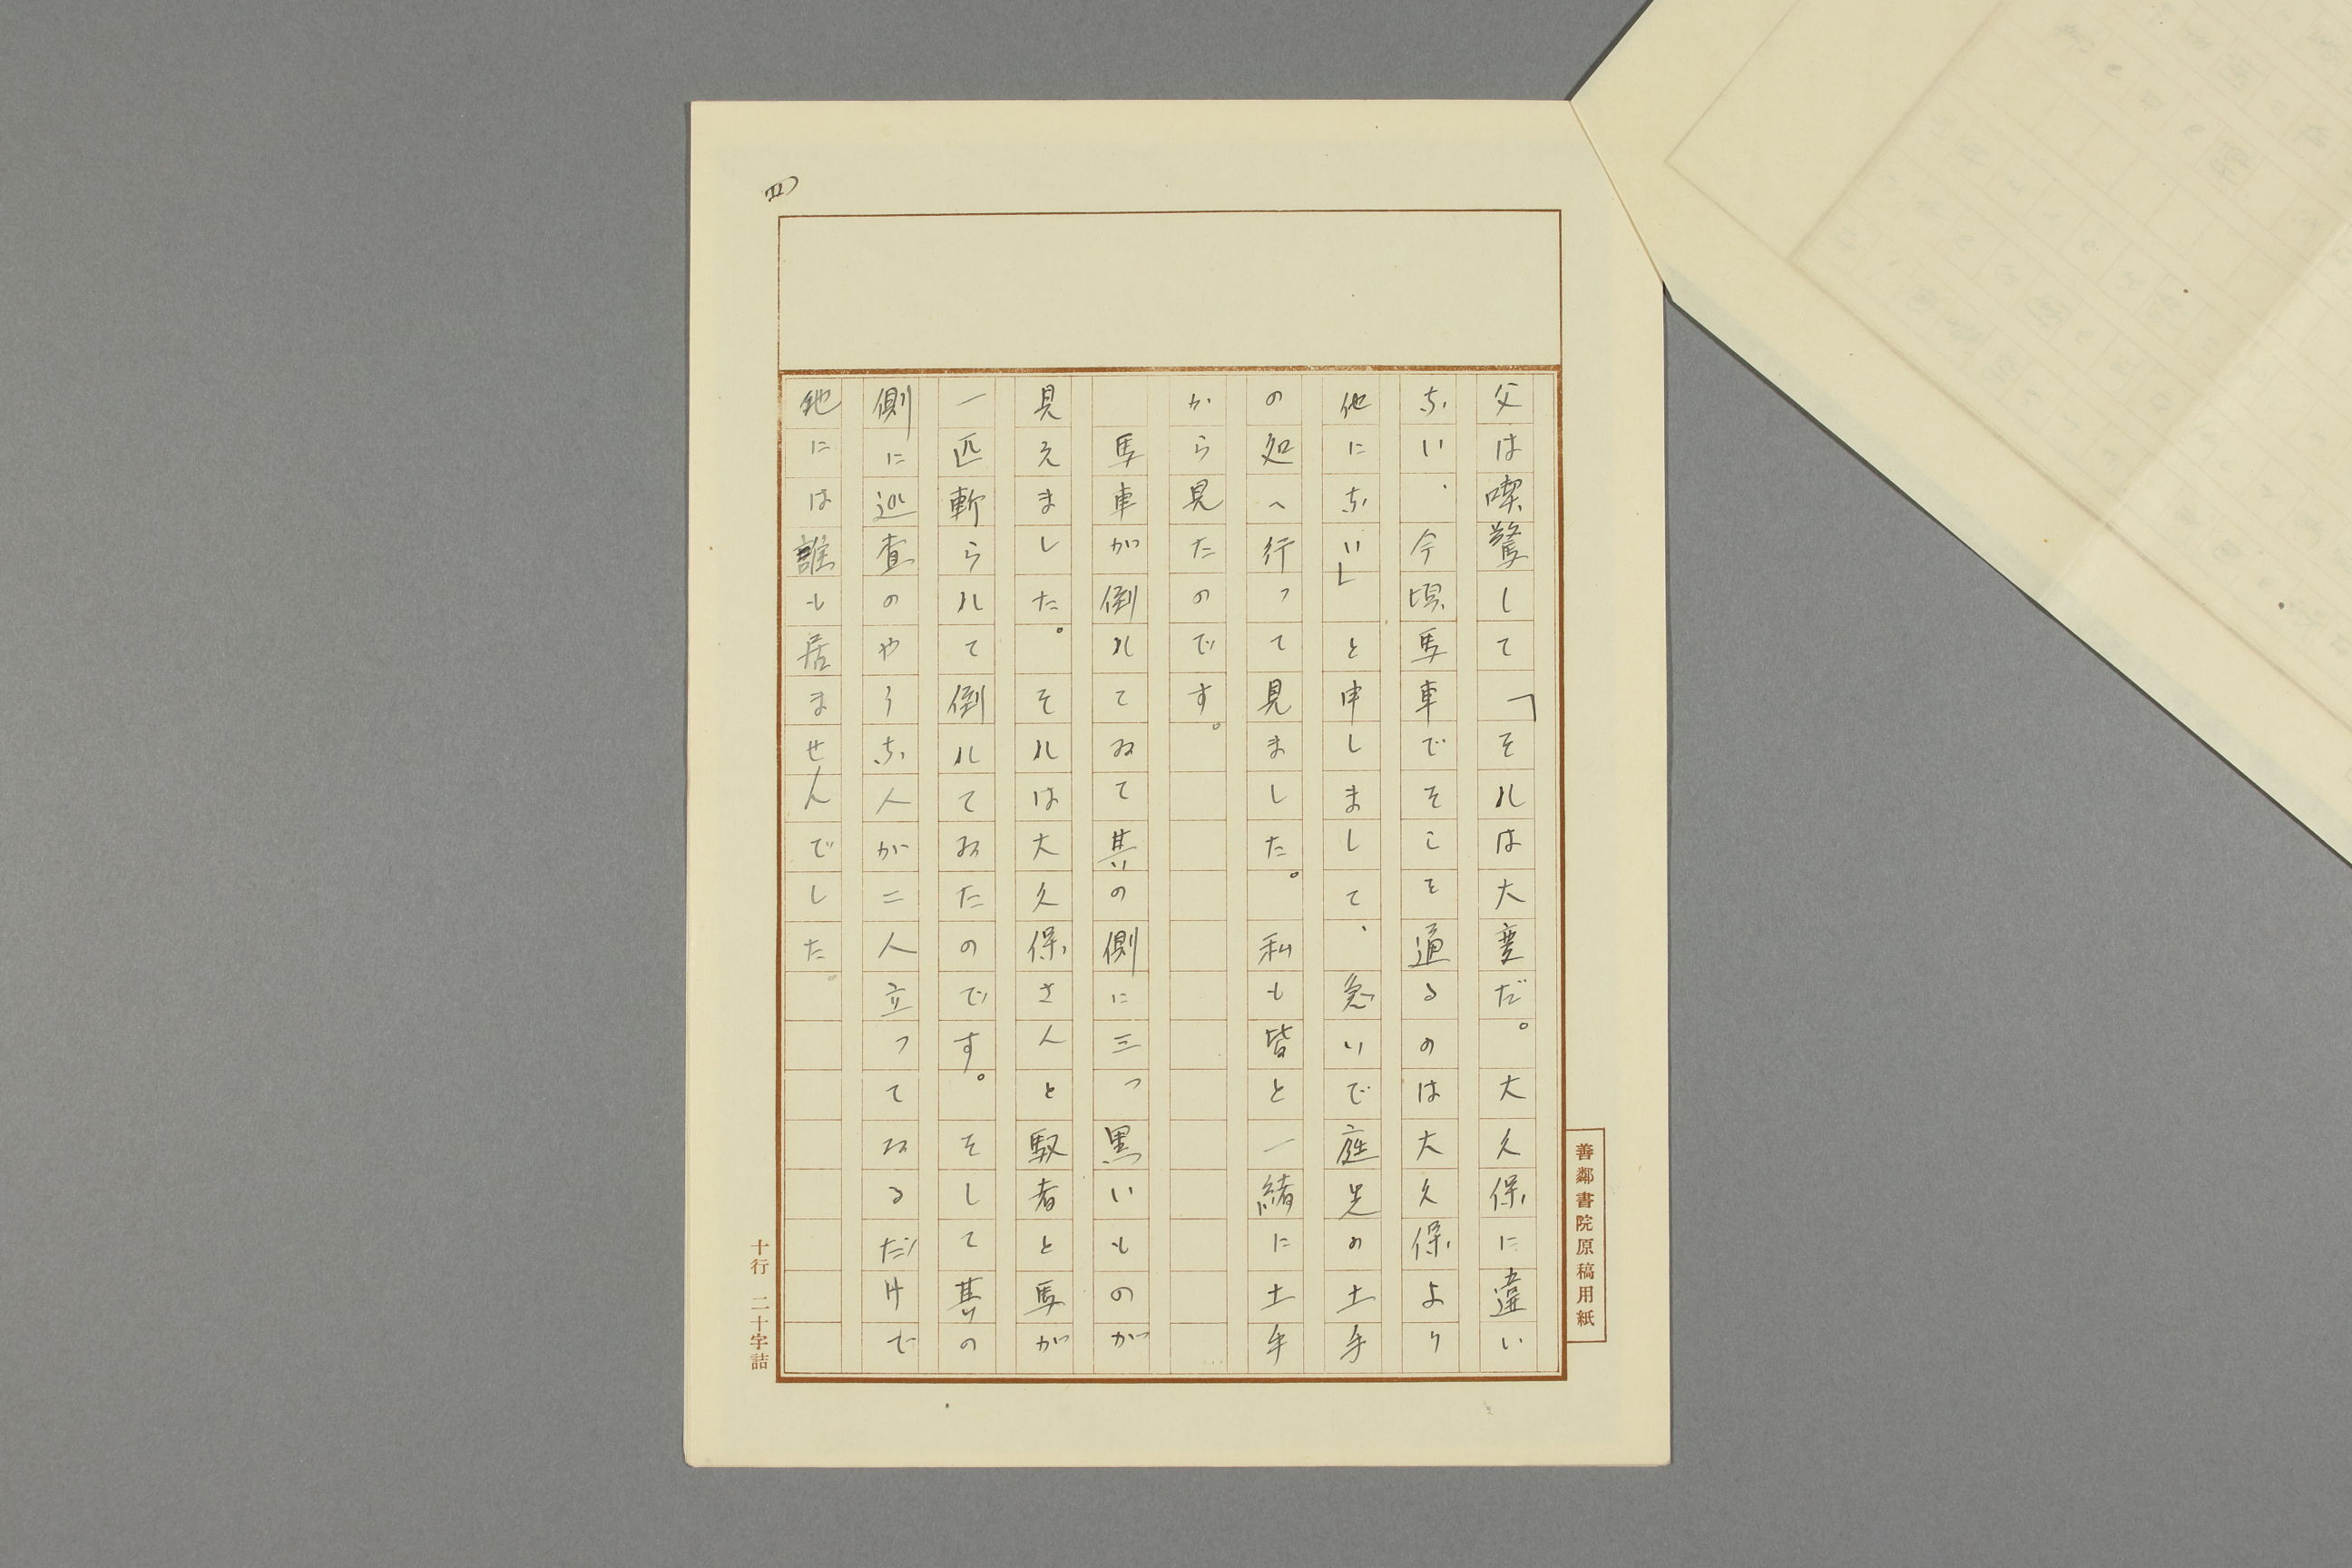 四)
父は喫驚して「それは大変だ。大久保に違い
ない、今頃馬車でそこを通るのは大久保より
他にない」と申しまして、急いで庭先の土手
の処へ行って見ました。私も皆と一緒に土手
から見たのです。
馬車が倒れてゐて其の側に三つ黒いものが
見えました。それは大久保さんと馭者と馬が
一匹斬られて倒れてゐたのです。そして其の
側に巡査のやうな人が二人立ってゐるだけで
他には誰も居ませんでした。
善鄰書院原稿用紙
十行 二十字詰